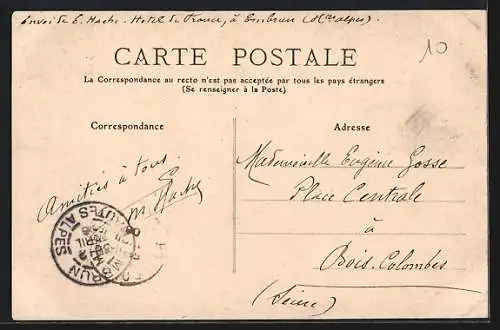 Envoi de E. Hache - Hotel de France, à Embrun (Htes alpes).
10
CARTE POSTALE
La Correspondance au recto n'est pas acceptée par tous les pays étrangers
(Se renseigner à la Poste)
Correspondance
Amitiés à tous
M. Hache
EMBRUN
HAUTES ALPES
Adresse
Mademoiselle Eugénie Gosse
Place Centrale
à
Bois-Colombes
(Seine)